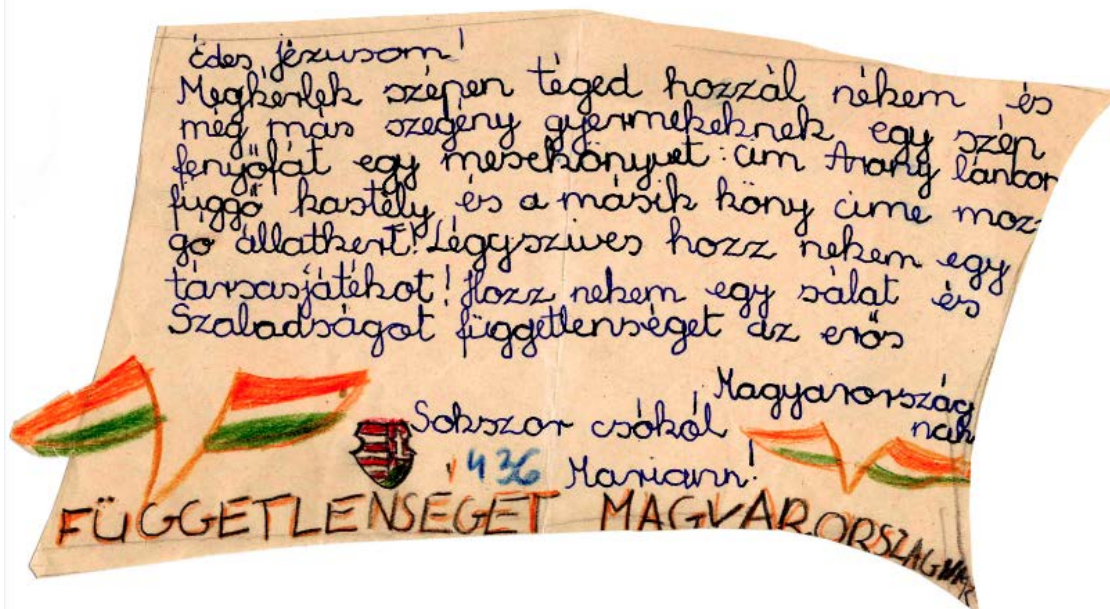 Édes jézusom!
Megkérlek szépen téged hozzál nékem és
még más szegény gyermekeknek egy szép
fenyőfát egy mesekönyvet: cim Arany láncon
függő kastély és a másik köny cime moz-
gó állatkert! Légyszives hozz nekem egy
társasjátékot! Hozz nekem egy sálat és
Szaladságot függetlenséget az erős
Magyarország
nak
Sokszor csókól
Mariann!
FÜGGETLENSÉGET MAGYARORSZÁGNAK